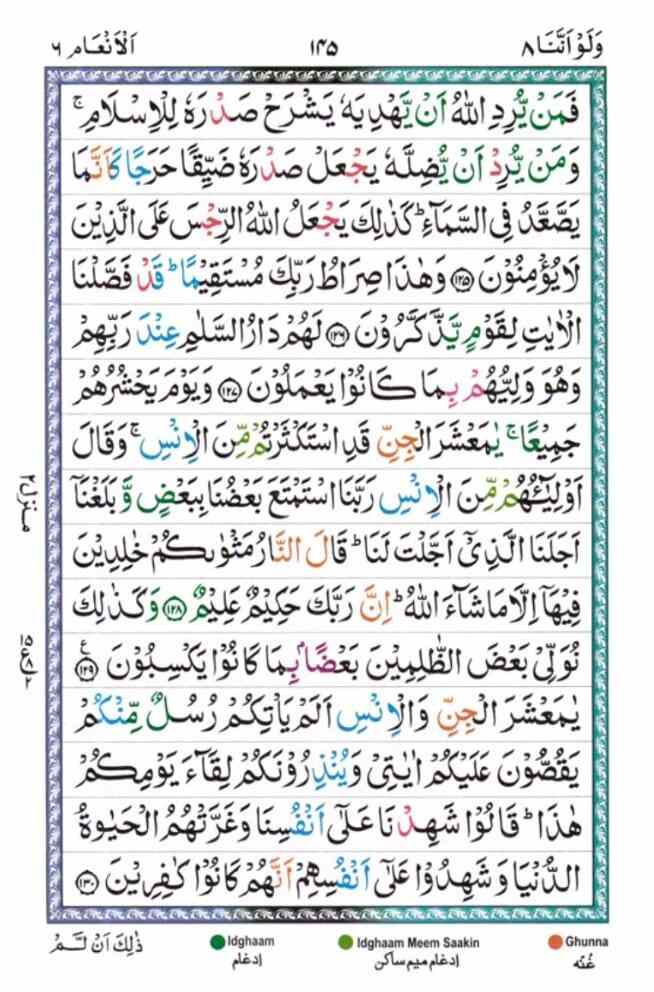 وَلَوْ اَنَّنَا ٨
١٤٥
اَلْاَنْعَام ٦
فَمَنْ يُّرِدِ اللّٰهُ اَنْ يَّهْدِيَهٗ يَشْرَحْ صَدْرَهٗ لِلْاِسْلَامِ ۚ
وَمَنْ يُّرِدْ اَنْ يُّضِلَّهٗ يَجْعَلْ صَدْرَهٗ ضَيِّقًا حَرَجًا كَاَنَّمَا
يَصَّعَّدُ فِى السَّمَآءِ ؕ كَذٰلِكَ يَجْعَلُ اللّٰهُ الرِّجْسَ عَلَى الَّذِيْنَ
لَا يُؤْمِنُوْنَ ﴿١٢٥﴾ وَهٰذَا صِرَاطُ رَبِّكَ مُسْتَقِيْمًا ؕ قَدْ فَصَّلْنَا
الْاٰيٰتِ لِقَوْمٍ يَّذَّكَّرُوْنَ ﴿١٢٦﴾ لَهُمْ دَارُ السَّلٰمِ عِنْدَ رَبِّهِمْ
وَهُوَ وَلِيُّهُمْ بِمَا كَانُوْا يَعْمَلُوْنَ ﴿١٢٧﴾ وَيَوْمَ يَحْشُرُهُمْ
جَمِيْعًا ۚ يٰمَعْشَرَ الْجِنِّ قَدِ اسْتَكْثَرْتُمْ مِّنَ الْاِنْسِ ۚ وَقَالَ
اَوْلِيٰٓـئُهُمْ مِّنَ الْاِنْسِ رَبَّنَا اسْتَمْتَعَ بَعْضُنَا بِبَعْضٍ وَّبَلَغْنَاۤ
اَجَلَنَا الَّذِىْۤ اَجَّلْتَ لَنَا ؕ قَالَ النَّارُ مَثْوٰٮكُمْ خٰلِدِيْنَ
فِيْهَاۤ اِلَّا مَا شَآءَ اللّٰهُ ؕ اِنَّ رَبَّكَ حَكِيْمٌ عَلِيْمٌ ﴿١٢٨﴾ وَكَذٰلِكَ
نُوَلِّىْ بَعْضَ الظّٰلِمِيْنَ بَعْضًۢا بِمَا كَانُوْا يَكْسِبُوْنَ ﴿١٢٩﴾ ع
يٰمَعْشَرَ الْجِنِّ وَالْاِنْسِ اَلَمْ يَاْتِكُمْ رُسُلٌ مِّنْكُمْ
يَقُصُّوْنَ عَلَيْكُمْ اٰيٰتِىْ وَيُنْذِرُوْنَكُمْ لِقَآءَ يَوْمِكُمْ
هٰذَا ؕ قَالُوْا شَهِدْنَا عَلٰٓى اَنْفُسِنَا وَغَرَّتْهُمُ الْحَيٰوةُ
الدُّنْيَا وَشَهِدُوْا عَلٰٓى اَنْفُسِهِمْ اَنَّهُمْ كَانُوْا كٰفِرِيْنَ ﴿١٣٠﴾
منزل ٢
ذٰلِكَ اَنْ لَّمْ
Idghaam
ادغام
Idghaam Meem Saakin
ادغام میم ساکن
Ghunna
غُنّه